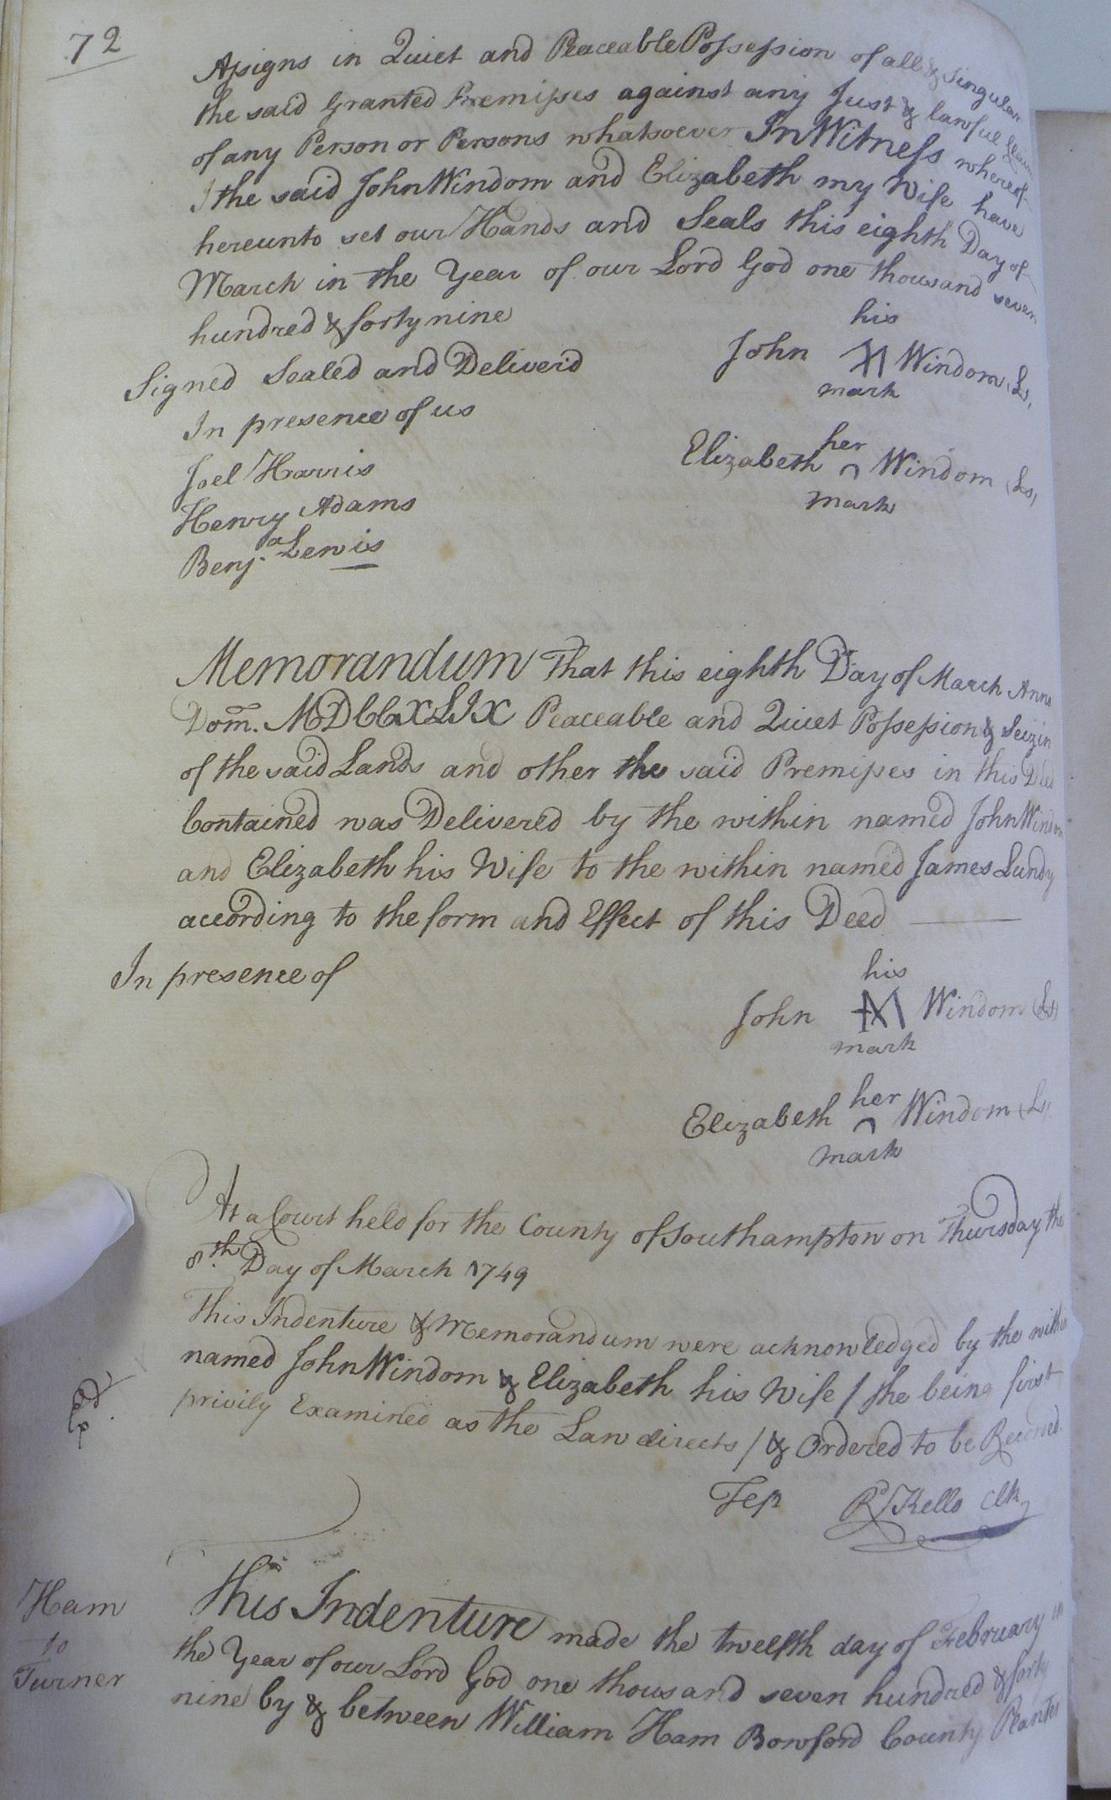 72
Assigns in Quiet and Peaceable Possession of all & Singular
the said Granted Premisses against any Just & lawful Claim
of any Person or Persons whatsoever In Witness whereof
I the said John Windom and Elizabeth my Wife have
hereunto set our Hands and Seals this eighth Day of
March in the Year of our Lord God one thousand seven
hundred & forty nine
his
John Windom (Ls)
mark
Signed Sealed and Deliver'd
In presence of us
her
Elizabeth Windom (Ls)
mark
Joel Harris
Henry Adams
Benja. Lewis
Memorandum That this eighth Day of March Anno
Dom. MDCCXLIX Peaceable and Quiet Possession & Seizin
of the said Lands and other the said Premisses in this Deed
Contained was Delivered by the within named John Windom
and Elizabeth his Wife to the within named James Lundy
according to the form and Effect of this Deed
In presence of
his
John Windom (Ls)
mark
her
Elizabeth Windom (Ls
mark
At a Court held for the County of Southampton on Thursday the
8th. Day of March 1749
This Indenture & Memorandum were acknowledged by the within
named John Windom & Elizabeth his Wife / she being first
privily Examined as the Law directs / & Ordered to be Recorded.
Test Rd Kello Clk
Ham
to
Turner
This Indenture made the twelfth day of February in
the Year of our Lord God one thousand seven hundred & forty
nine by & between William Ham County Planter